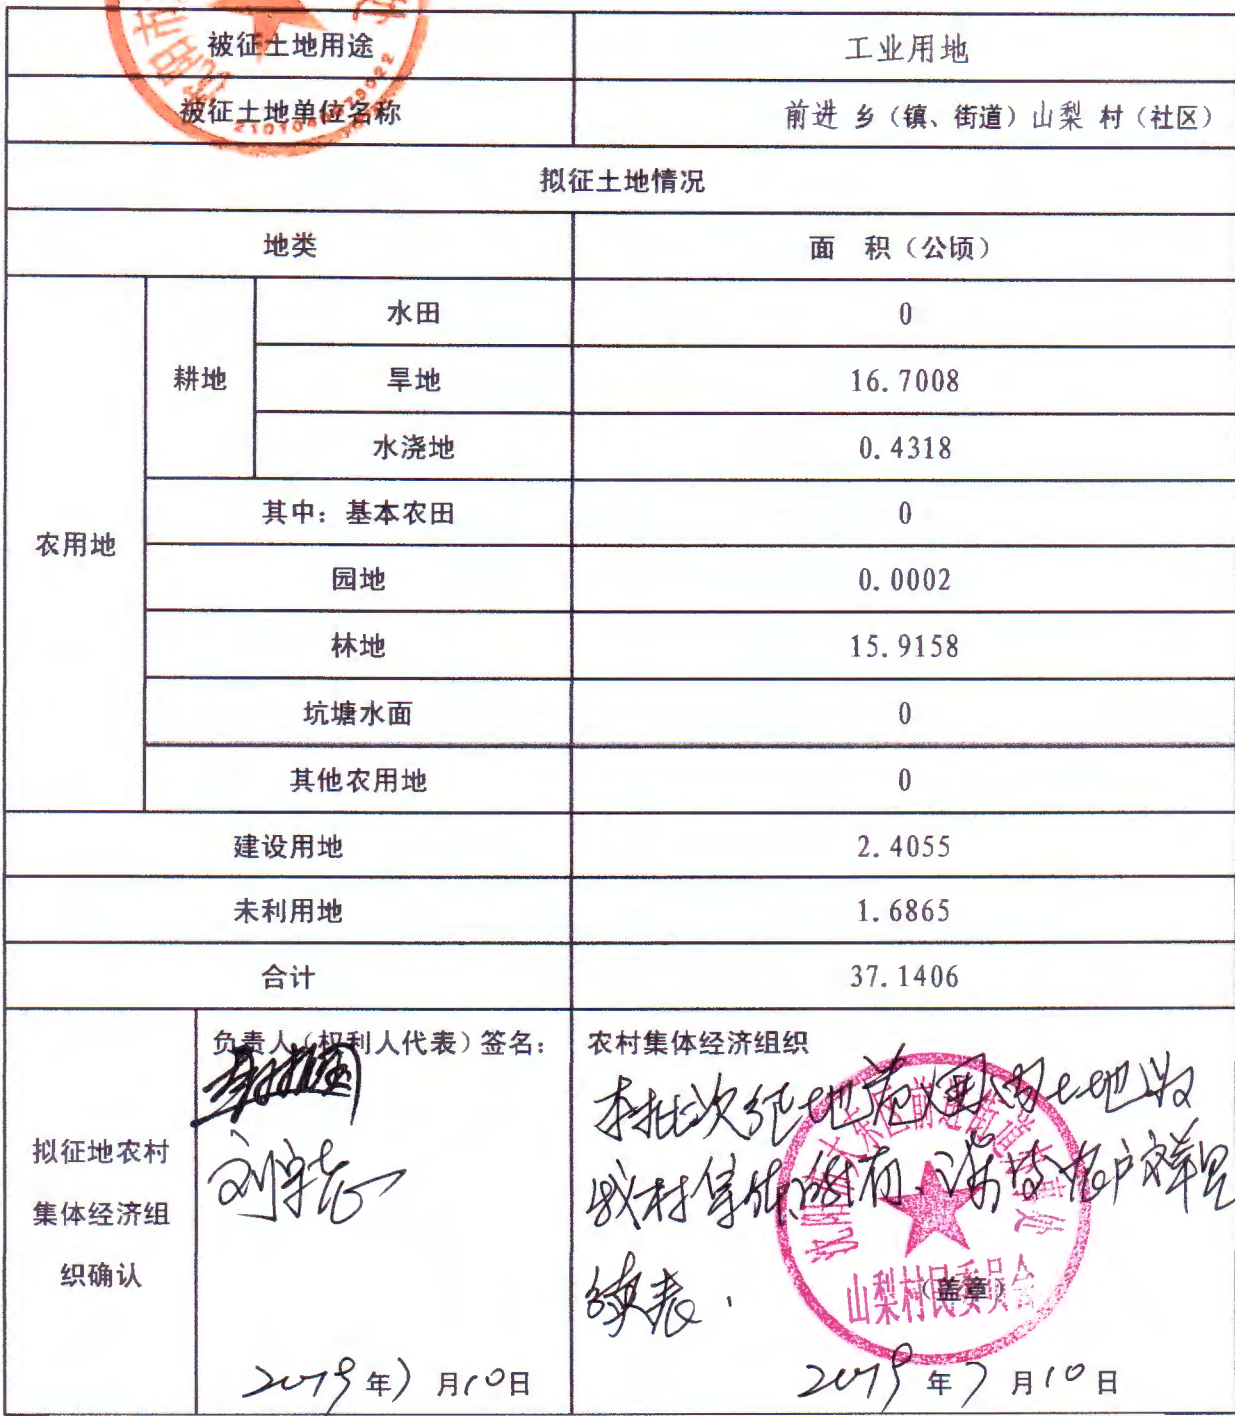 被征土地用途 工业用地
被征土地单位名称 前进 乡（镇、街道）山梨 村（社区）
拟征土地情况
地类 面 积（公顷）
农用地
耕地
水田 0
旱地 16.7008
水浇地 0.4318
其中：基本农田 0
园地 0.0002
林地 15.9158
坑塘水面 0
其他农用地 0
建设用地 2.4055
未利用地 1.6865
合计 37.1406
拟征地农村
集体经济组
织确认
负责人（权利人代表）签名：
2019年7月10日
农村集体经济组织
本批次征地范围内土地为
我村集体所有
续表.
山梨村民委员会
（盖章）
2019年7月10日